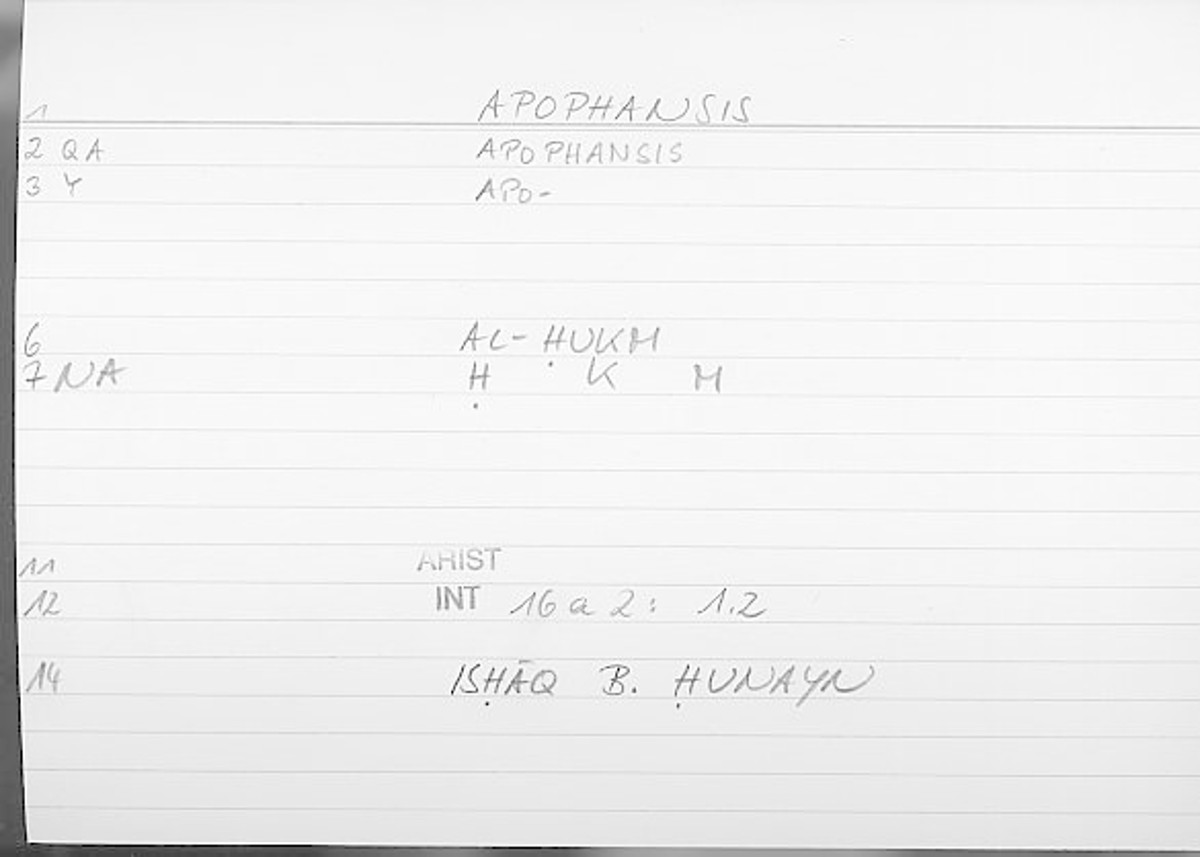 1 APOPHANSIS
2 QA APOPHANSIS
3 Y APO-
6 AL-ḤUKM
7 NA Ḥ K M
11 ARIST
12 INT 16a2: 1.2
14 ISḤĀQ B. ḤUNAYN